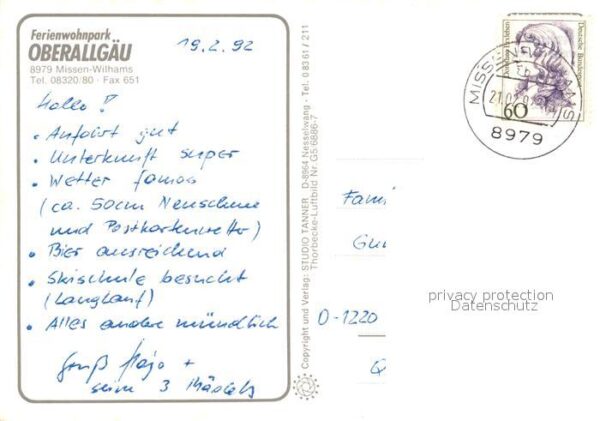 Ferienwohnpark
OBERALLGÄU
8979 Missen-Wilhams
Tel. 08320/80 · Fax 651
19.2.92
Hallo!
• Anfahrt gut
• Unterkunft super
• Wetter famos
(ca. 50cm Neuschnee
und Postkartenwetter)
• Bier ausreichend
• Skischule besucht
(Langlauf)
• Alles andere mündlich
Gruß Hajo +
seine 3 Mädels
Copyright und Verlag: STUDIO TANNER · D-8964 Nesselwang · Tel. 08361/211
Thorbecke-Luftbild Nr G5 6886-7
Deutsche Bundespost
Dorothea Erxleben
60
8979
Fami
Gu
O-1220
privacy protection
Datenschutz